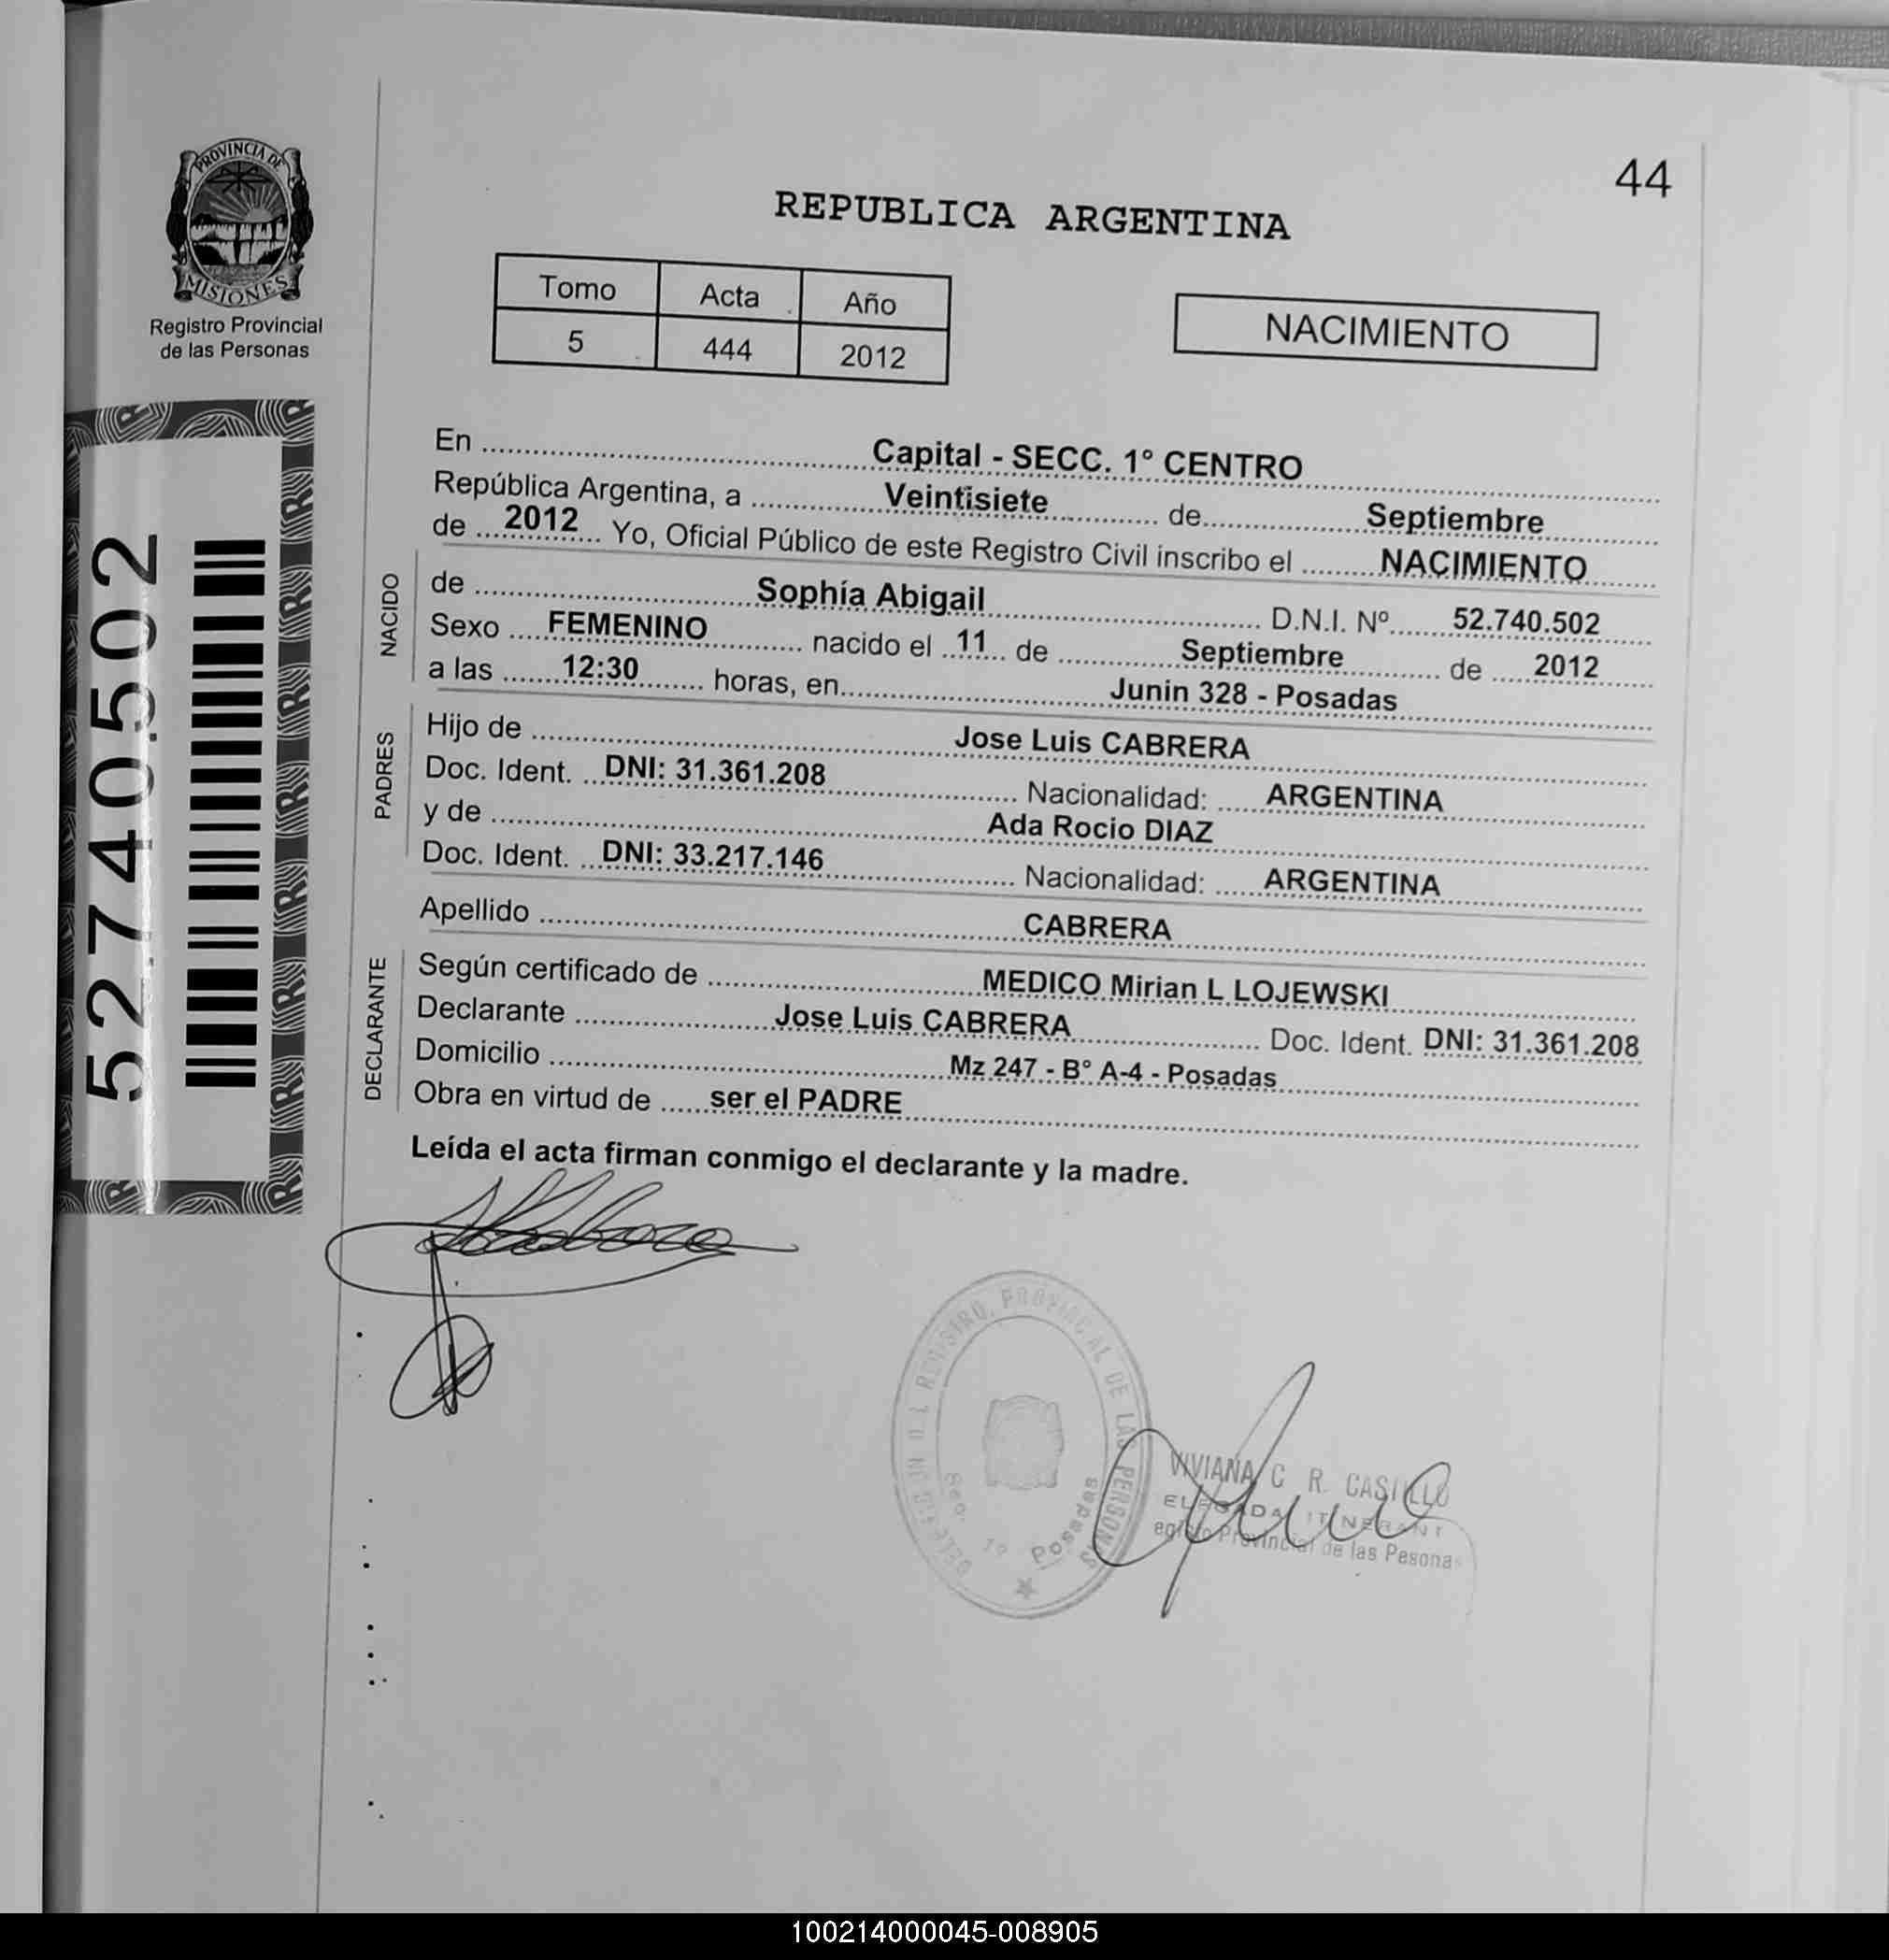 44
PROVINCIA DE
MISIONES
Registro Provincial
de las Personas
REPUBLICA ARGENTINA
Tomo Acta Año
5 444 2012
NACIMIENTO
52740502
En Capital - SECC. 1° CENTRO
República Argentina, a Veintisiete de Septiembre
de 2012 Yo, Oficial Público de este Registro Civil inscribo el NACIMIENTO
NACIDO
de Sophía Abigail D.N.I. Nº 52.740.502
Sexo FEMENINO nacido el 11 de Septiembre de 2012
a las 12:30 horas, en Junin 328 - Posadas
PADRES
Hijo de Jose Luis CABRERA
Doc. Ident. DNI: 31.361.208 Nacionalidad: ARGENTINA
y de Ada Rocio DIAZ
Doc. Ident. DNI: 33.217.146 Nacionalidad: ARGENTINA
Apellido CABRERA
DECLARANTE
Según certificado de MEDICO Mirian L LOJEWSKI
Declarante Jose Luis CABRERA Doc. Ident. DNI: 31.361.208
Domicilio Mz 247 - B° A-4 - Posadas
Obra en virtud de ser el PADRE
Leída el acta firman conmigo el declarante y la madre.
REGISTRO PROVINCIAL DE LAS PERSONAS
Sec. 1º Posadas
VIVIANA C R. CASTILLO
de las Pesonas
100214000045-008905